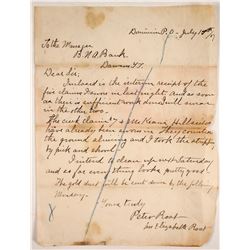 Dominion P.O. July 18th/07
To the Manager
B.N.A. Bank
Dawson Y.T.
Dear Sir,
Inclosed is the interim receipt of the
five claims Dawes on last night, and as soon
as there is sufficient work done I will swear
in the other two.
The work claim 7 & see Keane Hillsides
have already been sworn in. They consider
the ground and I took the slippy
by pick and shovel.
I intend to clean up next Saturday
and so far every thing looks pretty good.
The gold dust will be sent down by the following
Monday.
Yours truly
Peter Rost
per Elizabeth Rost